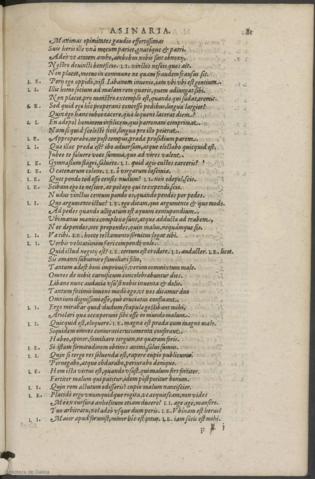 ASINARIA. 81
Maximas opimitates gaudio effertissimas
Suis heris ille una mecum pariet, gnatoque & patri.
Adeo ut aetatem ambo, ambobus nobis sint obnoxij,
Nostro devincti beneficio. LI. vinctos nescio quos ait.
Non placet, metuo in commune ne quam fraudem frausus sit.
LE. Perij ego oppidò, nisi Libanum invenio, iam ubi ubi est gentium.
LI. Illic homo socium ad malam rem quaerit, quem adiungat sibi.
Non placet, pro monstro extemplo est, quando qui sudat, tremit.
LE. Sed quid ego hic properans concesso pedibus, lingua largior?
Quin ego hanc iubeo tacere, quae loquens lacerat diem?
LI. Edepol hominem infelicem, qui patronam comprimat.
Nam si quid scelestè fecit, lingua pro illo peierat.
LE. Approperabo, ne post tempus, praeda praesidium parem.
LI. Quae illaec praeda est? ibo adversum, atque electabo quicquid est.
Iubeo te salvere voce summa, quo ad vires valent.
LE. Gymnasium flagri, salveto. LI. quid agis custos carceris?
LE. O catenarum colone. LI. ô virgarum lascivia.
LE. Quot pondo ted esse censes nudum? LI. non edepol scio.
LE. Scibam ego te nescire, at pol ego qui te expendi scio.
Nudus vinctus centum pondo es, quando pendes per pedes.
LI. Quo argumento istuc? LE. ego dicam, quo argumento & quo modo.
Ad pedes quando alligatum est aequum centupondium,
Ubi manus manicae complexae sunt, atque adductae ad trabem,
Nec dependes, nec propendes, quin malus, nequamque sis.
LI. Vae tibi. LE. hoc testamento servitus legat tibi.
LI. Verbis velitationem fieri compendi volo.
Quid istud negoti est? LE. certum est credere. LI. audacter. LE. licet.
Sis amanti subvenire familiari filio,
Tantum adest boni improviso, verum commixtum malo.
Omnes de nobis carnificum concelebrabuntur dies.
Libane nunc audacia usus est nobis inventa & dolis.
Tantum facinus inveni modo ego, ut nos dicamur duo
Omnium dignissimi esse, quò cruciatus confluant.
LI. Ergo mirabar quod dudum scapulae gestibant mihi,
Ariolari quae occeperunt sibi esse in mundo malum.
LI. Quicquid est, eloquere. LE. magna est praeda cum magno malo.
Siquidem omnes coniurati cruciamenta conferant.
Habeo, opinor, familiare tergum, ne quaeram foris.
LE. Si istam firmitudinem obtines animi, salvi sumus.
LI. Quin si tergo res solvenda est, rapere cupio publicum.
Pernegabo, atque obdurabo, periurabo denique.
LE. Hem ista virtus est, quando usus est, qui malum fert fortiter.
Fortiter malum qui patitur, idem post potitur bonum.
LI. Quin rem actutum edisseris? cupio malum nanciscier.
LE. Placidè ergo unumquidque rogita, ut acquiescam, non vides
Me ex cursura anhelitum etiam ducere? LI. age age, mansero.
Tuo arbitratu, vel adeò usque dum peris. LE. Ubinam est herus?
LI. Maior apud forum st, minor hîc est intus. LE. iam satis est mihi.